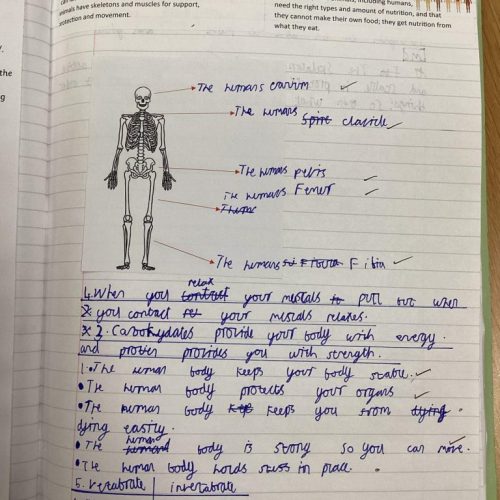 animals have skeletons and muscles for support,
protection and movement.
including humans,
need the right types and amount of nutrition, and that
they cannot make their own food; they get nutrition from
what they eat.
the
The humans cranium
The humans Spine clavicle
The humans pelvis
The humans Femur
The humans Fibia
4. When you contract relax your mescals to pull but when
you contact rel your mescals relaxes.
3. Carbohydates provide your body with energy.
and protien provides you with strength.
1. The human body keeps your body stable.
• The human body protects your organs
• The human body keeps you from dying
dying easily.
• The human body is strong so you can move.
• The human body holds in place.
5. vertabrate | invertabrate